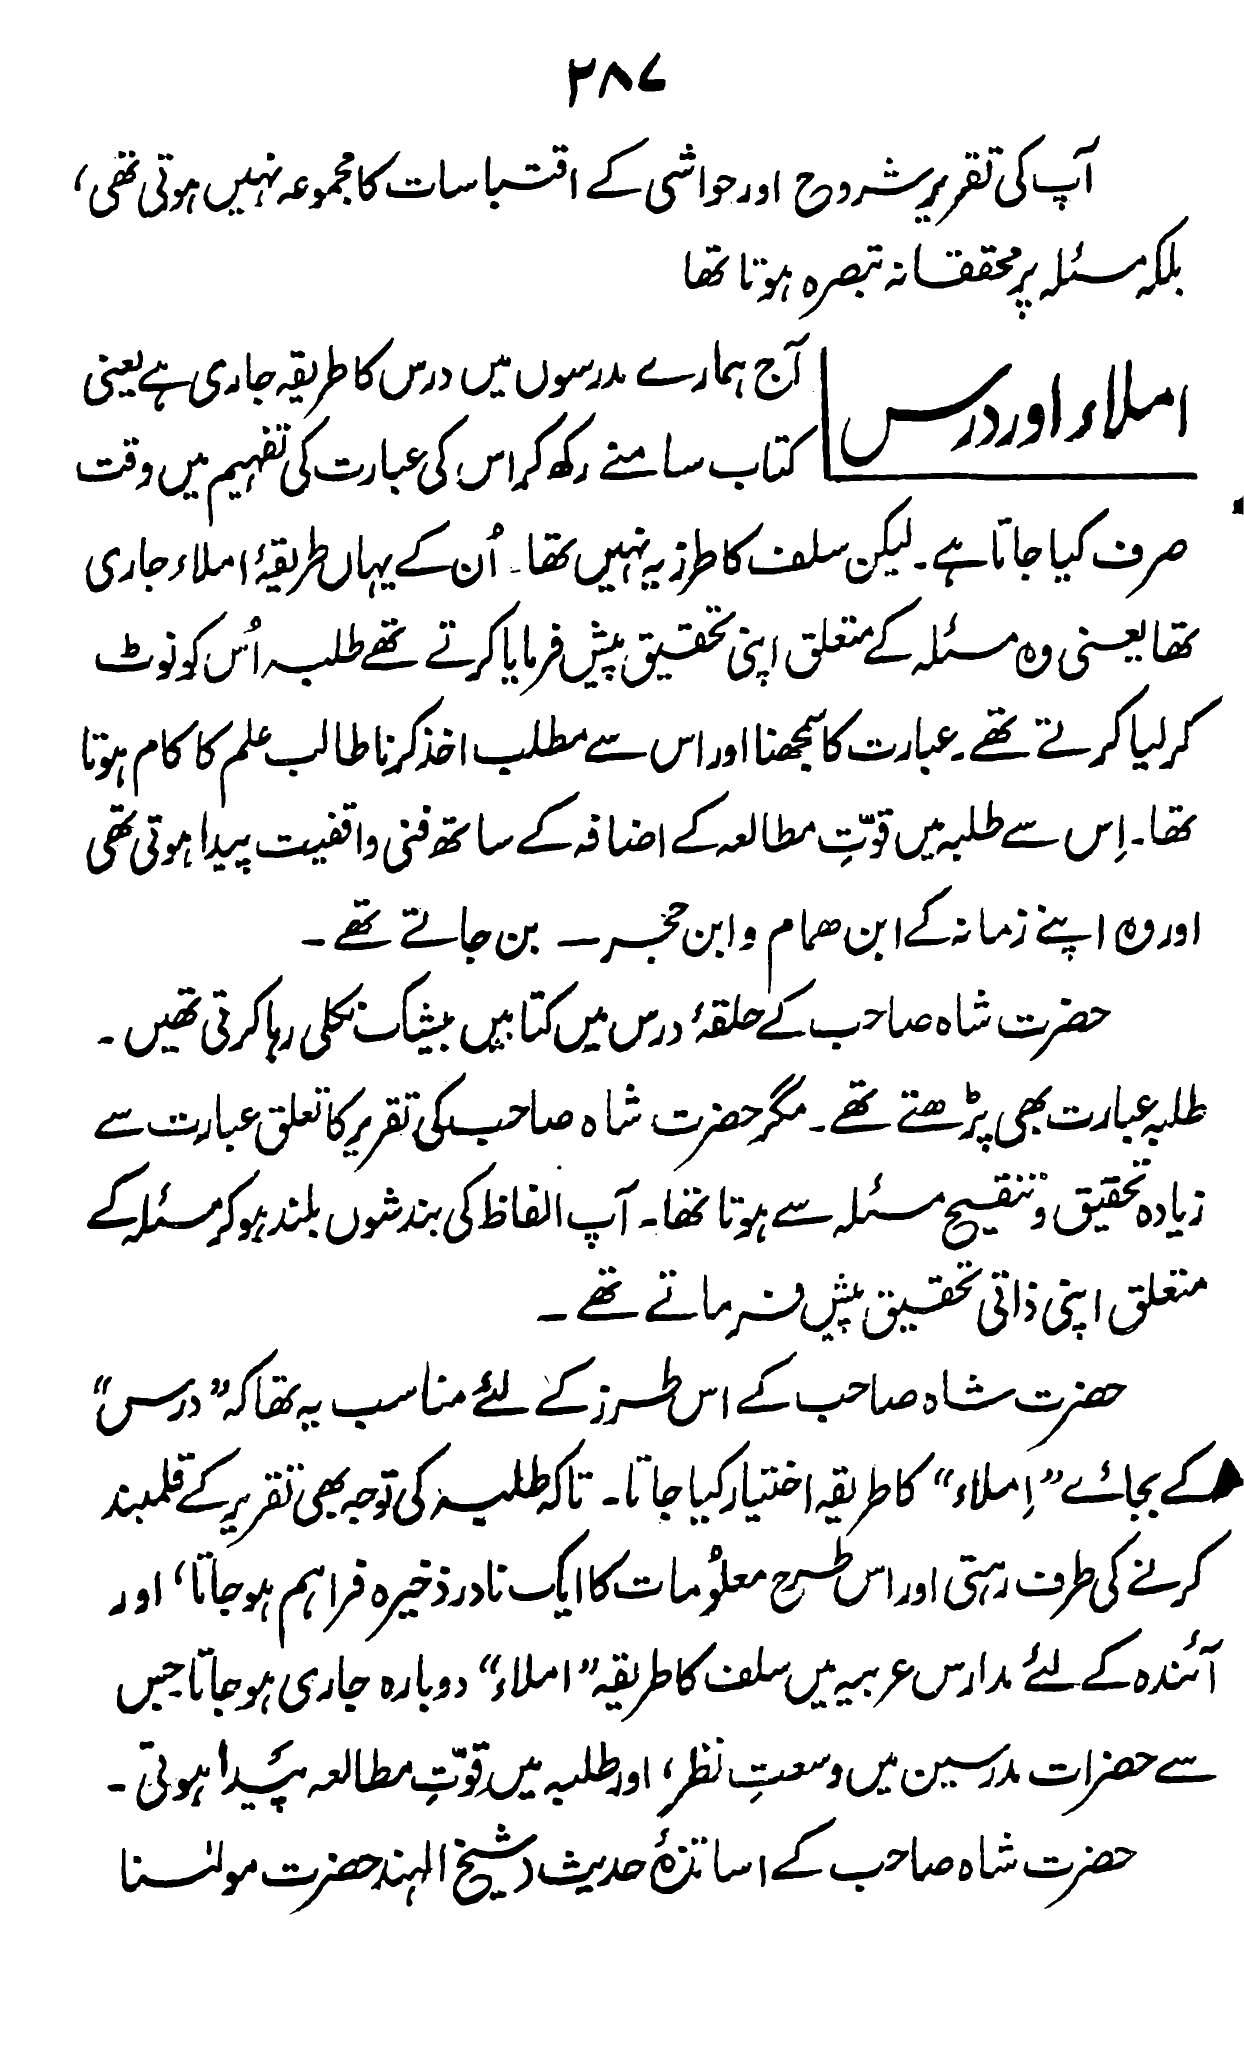 ۲۸۷
آپ کی تقریر شروح اور حواشی کے اقتباسات کا مجموعہ نہیں ہوتی تھی،
بلکہ مسئلہ پر محققانہ تبصرہ ہوتا تھا
املاء اور درس
آج ہمارے مدرسوں میں درس کا طریقہ جاری ہے یعنی
کتاب سامنے رکھ کر اس کی عبارت کی تفہیم میں وقت
صرف کیا جاتا ہے۔ لیکن سلف کا طرز یہ نہیں تھا۔ اُن کے یہاں طریقۂ املاء جاری
تھا یعنی وہ مسئلہ کے متعلق اپنی تحقیق پیش فرمایا کرتے تھے طلبہ اُس کو نوٹ
کر لیا کرتے تھے۔ عبارت کا سمجھنا اور اس سے مطلب اخذ کرنا طالب علم کا کام ہوتا
تھا۔ اِس سے طلبہ میں قوّتِ مطالعہ کے اضافہ کے ساتھ فنی واقفیت پیدا ہوتی تھی
اور وہ اپنے زمانہ کے ابن ھمام و ابن حجر ــ بن جاتے تھے۔
حضرت شاہ صاحب کے حلقۂ درس میں کتابیں بیشک کھلی رہا کرتی تھیں۔
طلبہ عبارت بھی پڑھتے تھے۔ مگر حضرت شاہ صاحب کی تقریر کا تعلق عبارت سے
زیادہ تحقیق و تنقیح مسئلہ سے ہوتا تھا۔ آپ الفاظ کی بندشوں بلند ہو کر مسئلہ کے
متعلق اپنی ذاتی تحقیق پیش فرماتے تھے۔
حضرت شاہ صاحب کے اس طرز کے لئے مناسب یہ تھا کہ ”درس“
کے بجائے ”اِملاء“ کا طریقہ اختیار کیا جاتا۔ تاکہ طلبہ کی توجہ بھی تقریر کے قلمبند
کرنے کی طرف رہتی اور اس طرح معلُومات کا ایک نادر ذخیرہ فراہم ہو جاتا، اور
آئندہ کے لئے مدارس عربیہ میں سلف کا طریقہ ”املاء“ دوبارہ جاری ہو جاتا جس
سے حضرات مدرسین میں وسعتِ نظر، اور طلبہ میں قوّتِ مطالعہ پیدا ہوتی۔
حضرت شاہ صاحب کے اساتذۂ حدیث (شیخ الہند حضرت مولٰنا